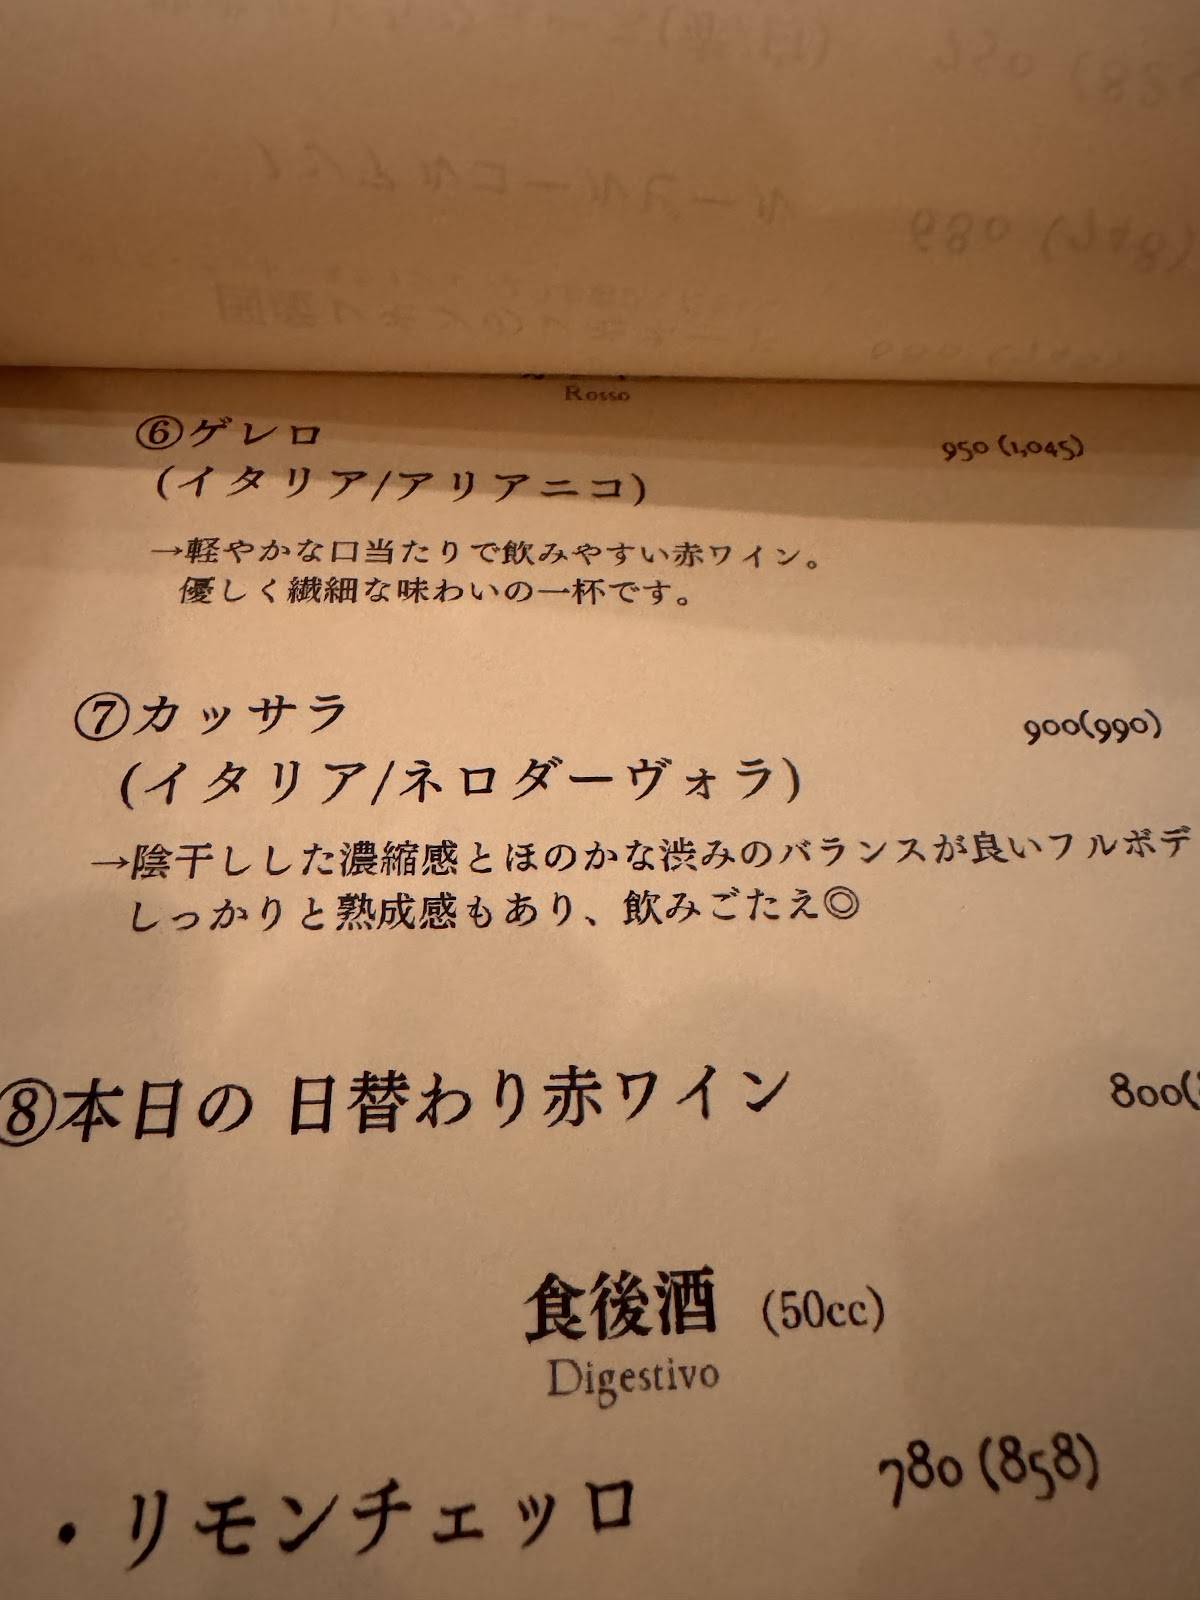 Rosso
⑥ゲレロ 950 (1,045)
(イタリア/アリアニコ)
→軽やかな口当たりで飲みやすい赤ワイン。
優しく繊細な味わいの一杯です。
⑦カッサラ 900(990)
(イタリア/ネロダーヴォラ)
→陰干しした濃縮感とほのかな渋みのバランスが良いフルボデ
しっかりと熟成感もあり、飲みごたえ◎
⑧本日の 日替わり赤ワイン 800(
食後酒 (50cc)
Digestivo
・リモンチェッロ 780 (858)